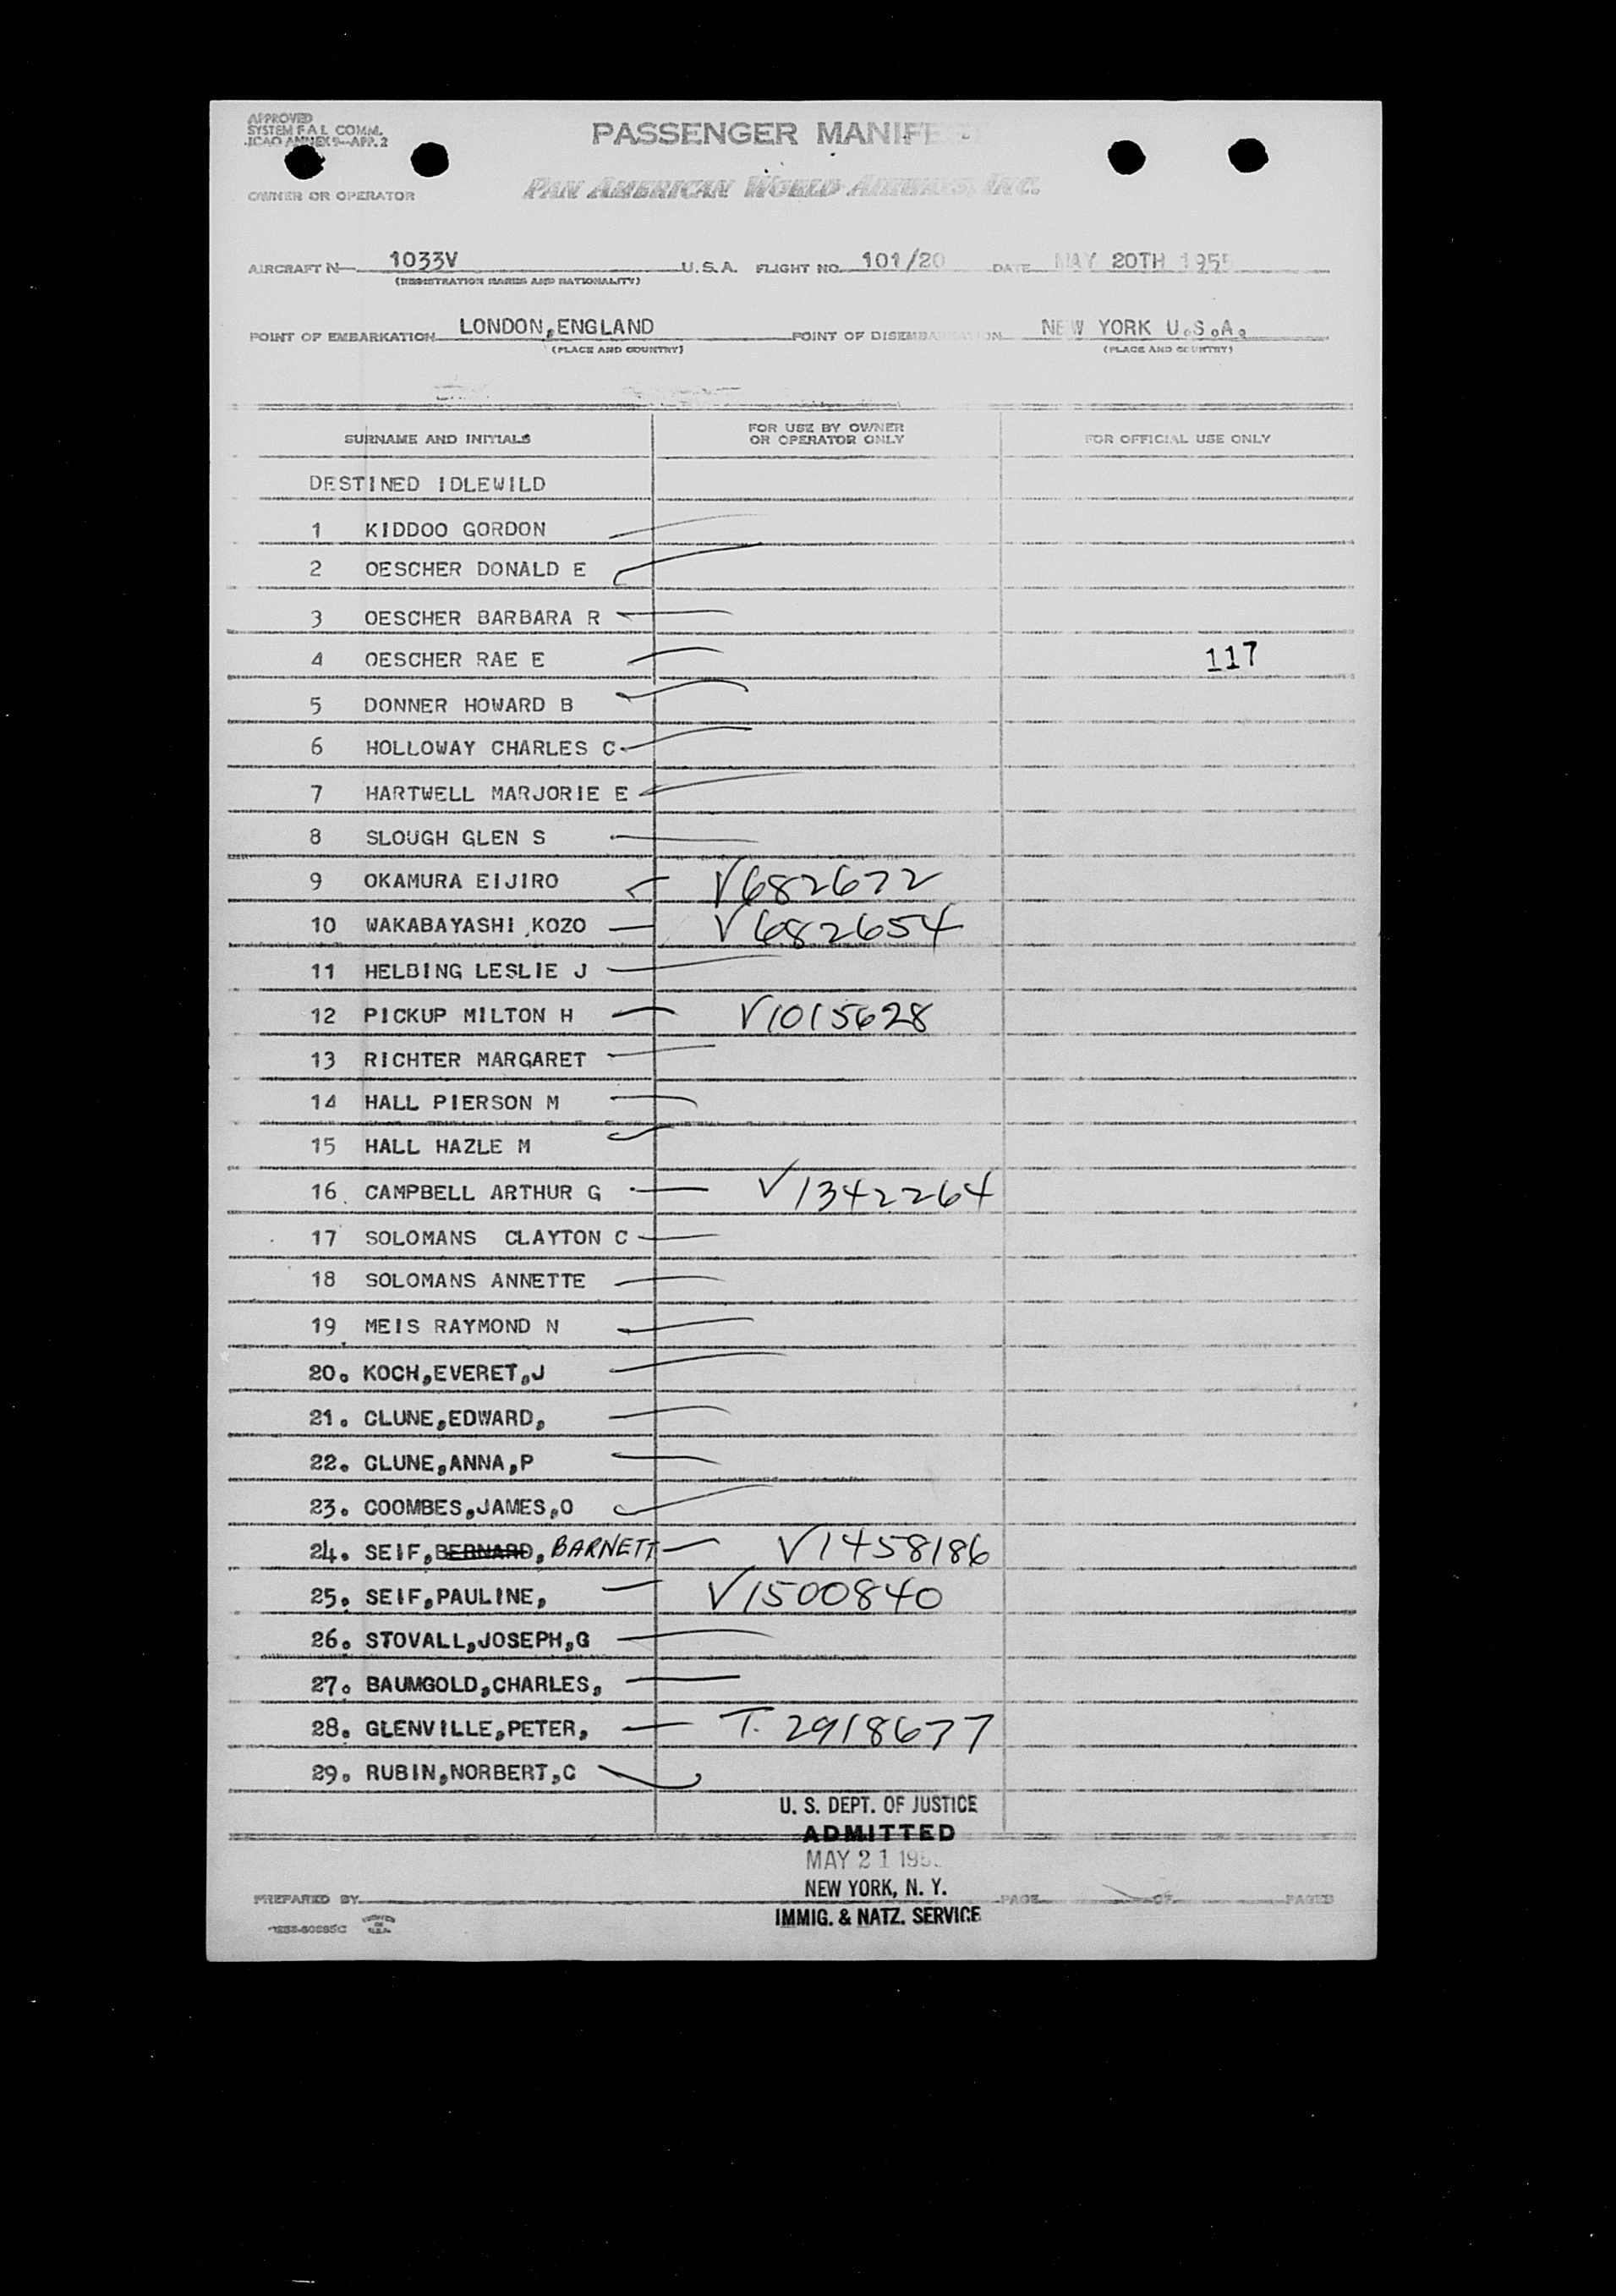 APPROVED
SYSTEM F A L COMM.
ICAO ANNEX 9—APP. 2
PASSENGER MANIFE
OWNER OR OPERATOR
PAN AMERICAN WORLD AIRWAYS, INC.
AIRCRAFT N— 1033V U.S.A. FLIGHT NO. 101/20 DATE MAY 20TH 1955
(REGISTRATION MARKS AND NATIONALITY)
POINT OF EMBARKATION LONDON,ENGLAND POINT OF DISEMBARKATION NEW YORK U.S.A.
(PLACE AND COUNTRY) (PLACE AND COUNTRY)
SURNAME AND INITIALS FOR USE BY OWNER OR OPERATOR ONLY FOR OFFICIAL USE ONLY
DESTINED IDLEWILD
1 KIDDOO GORDON
2 OESCHER DONALD E
3 OESCHER BARBARA R
4 OESCHER RAE E 117
5 DONNER HOWARD B
6 HOLLOWAY CHARLES C
7 HARTWELL MARJORIE E
8 SLOUGH GLEN S
9 OKAMURA EIJIRO V682672
10 WAKABAYASHI KOZO V682654
11 HELBING LESLIE J
12 PICKUP MILTON H V1015628
13 RICHTER MARGARET
14 HALL PIERSON M
15 HALL HAZLE M
16 CAMPBELL ARTHUR G V1342264
17 SOLOMANS CLAYTON C
18 SOLOMANS ANNETTE
19 MEIS RAYMOND N
20. KOCH,EVERET,J
21. CLUNE,EDWARD,
22. CLUNE,ANNA,P
23. COOMBES,JAMES,O
24. SEIF,BERNARD, BARNETT V1458186
25. SEIF,PAULINE, V1500840
26. STOVALL,JOSEPH,G
27. BAUMGOLD,CHARLES,
28. GLENVILLE,PETER, T. 2918677
29. RUBIN,NORBERT,C
U. S. DEPT. OF JUSTICE
ADMITTED
MAY 21 195
NEW YORK, N. Y.
IMMIG. & NATZ. SERVICE
PREPARED BY PAGE OF PAGES
PRINTED IN U.S.A.